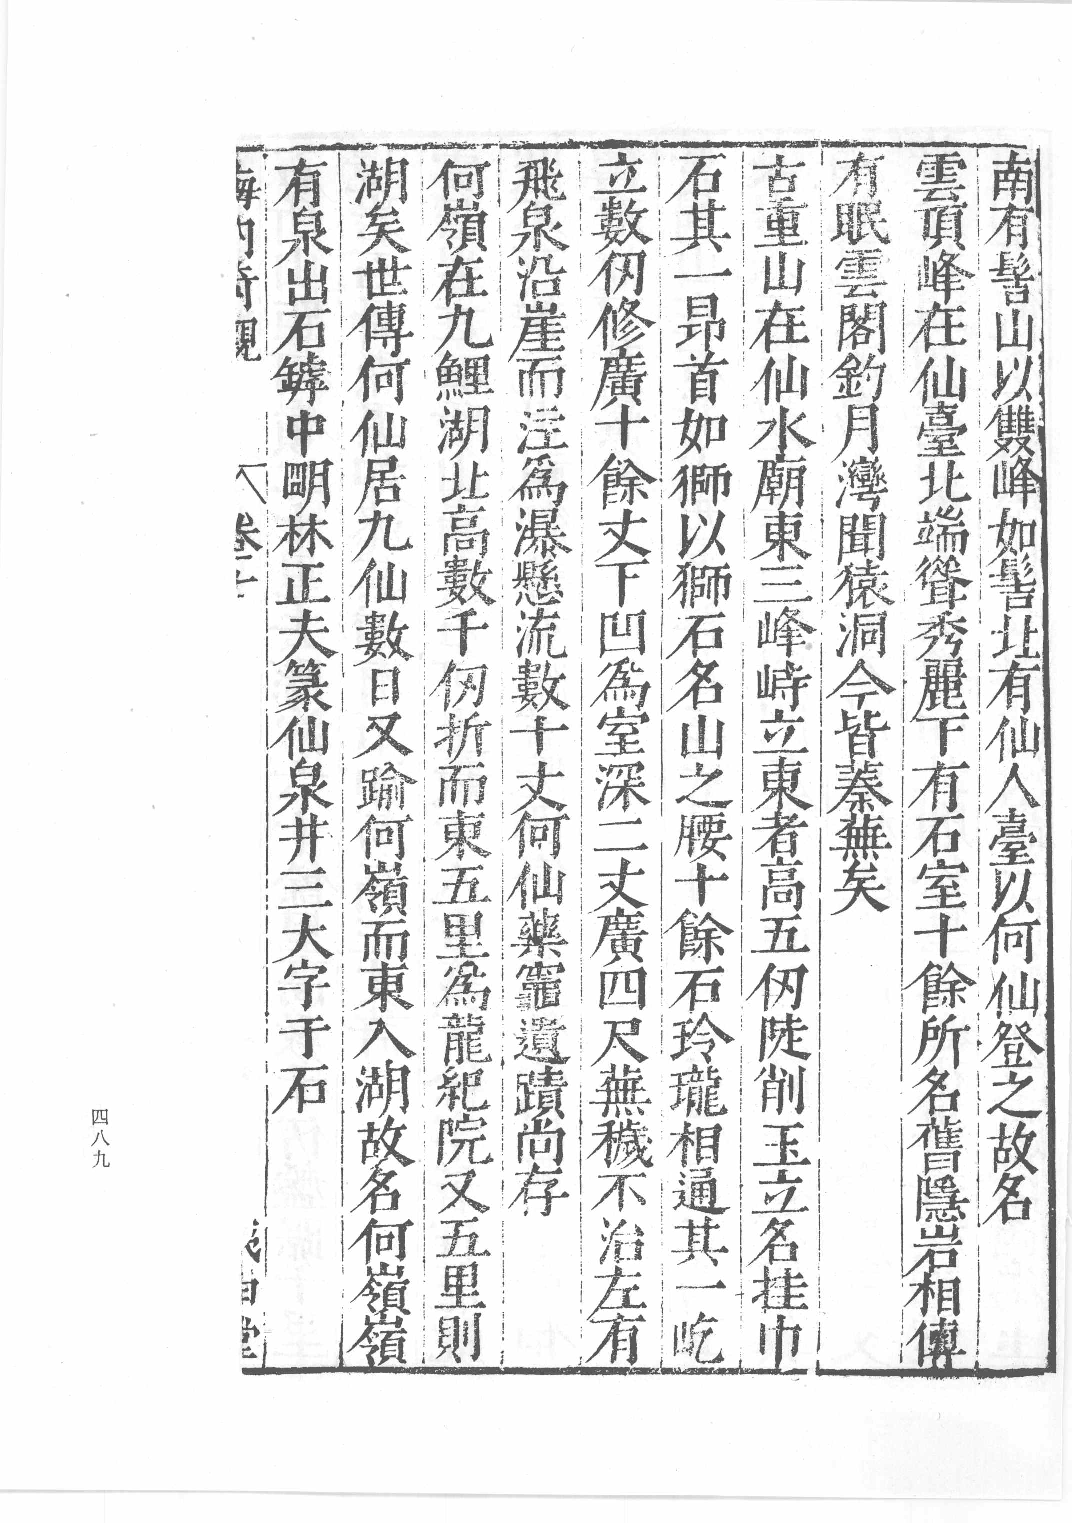 南有髻山以雙峰如髻北有仙人臺以何仙登之故名
雲頂峰在仙臺北端聳秀麗下有石室十餘所名舊隱岩相傳
有眠雲閣釣月灣聞猿洞今皆蓁蕪矣
古重山在仙水廟東三峰峙立東者高五仞陡削玉立名挂巾
石其一昂首如獅以獅石名山之腰十餘石玲瓏相通其一屹
立數仞修廣十餘丈下凹為室深二丈廣四尺蕪穢不治左有
飛泉沿崖而淫為瀑懸流數十丈何仙藥竈遺蹟尚存
何嶺在九鯉湖北高數千仞折而東五里為龍紀院又五里則
湖矣世傳何仙居九仙數日又踰何嶺而東入湖故名何嶺嶺
有泉出石罅中朙林正夫篆仙泉井三大字于石
海內奇觀
卷十
堂
四八九